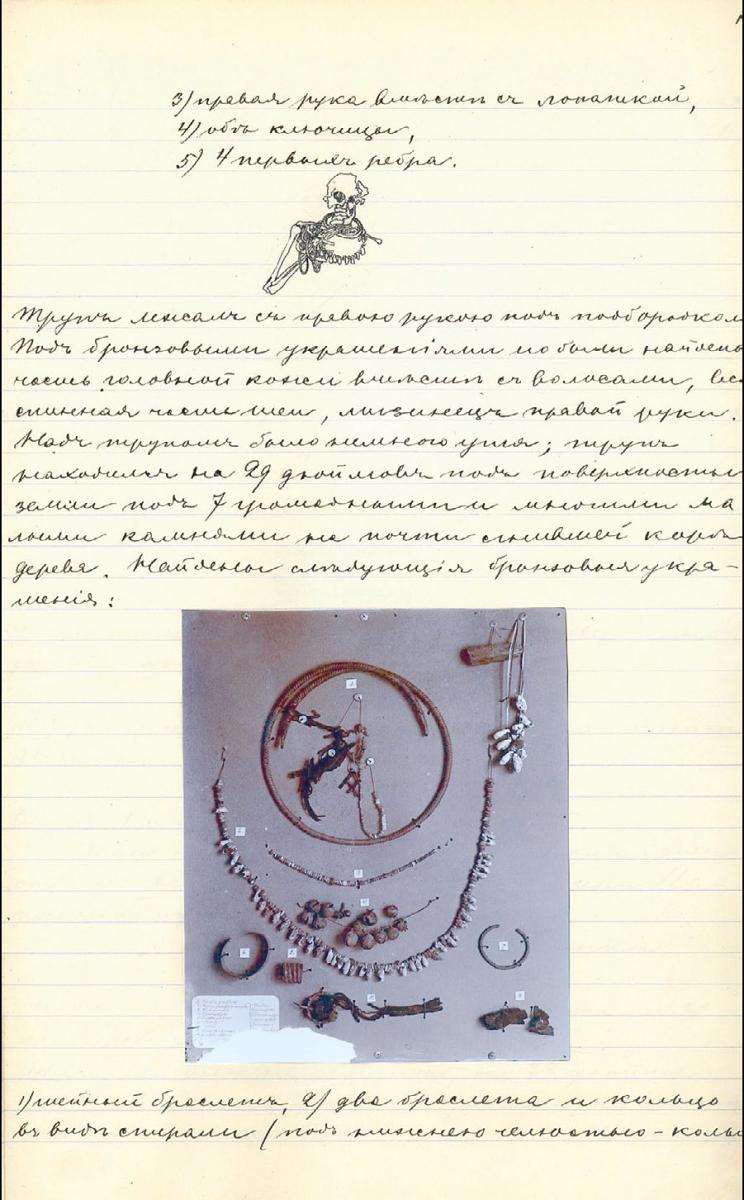 3) правая рука вмѣстѣ съ лопаткой,
4) обѣ ключицы,
5) 4 первыхъ ребра.
Трупъ лежалъ съ правою рукою подъ подбородком
Подъ бронзовыми украшеніями были найдены
часть головной кожи вмѣстѣ съ волосами, вся
спинная часть шеи, мизинецъ правой руки.
Надъ трупомъ было немного угля; трупъ
находился на 29 дюймовъ подъ поверхностью
земли подъ 7 громадными и многими ма
лыми камнями на почти сгнившей корѣ
дерева. Найдены слѣдующія бронзовыя укра-
шенія:
1) шейный браслетъ, 2) два браслета и кольцо
въ видѣ спирали (подъ нижнею челюстью - коль